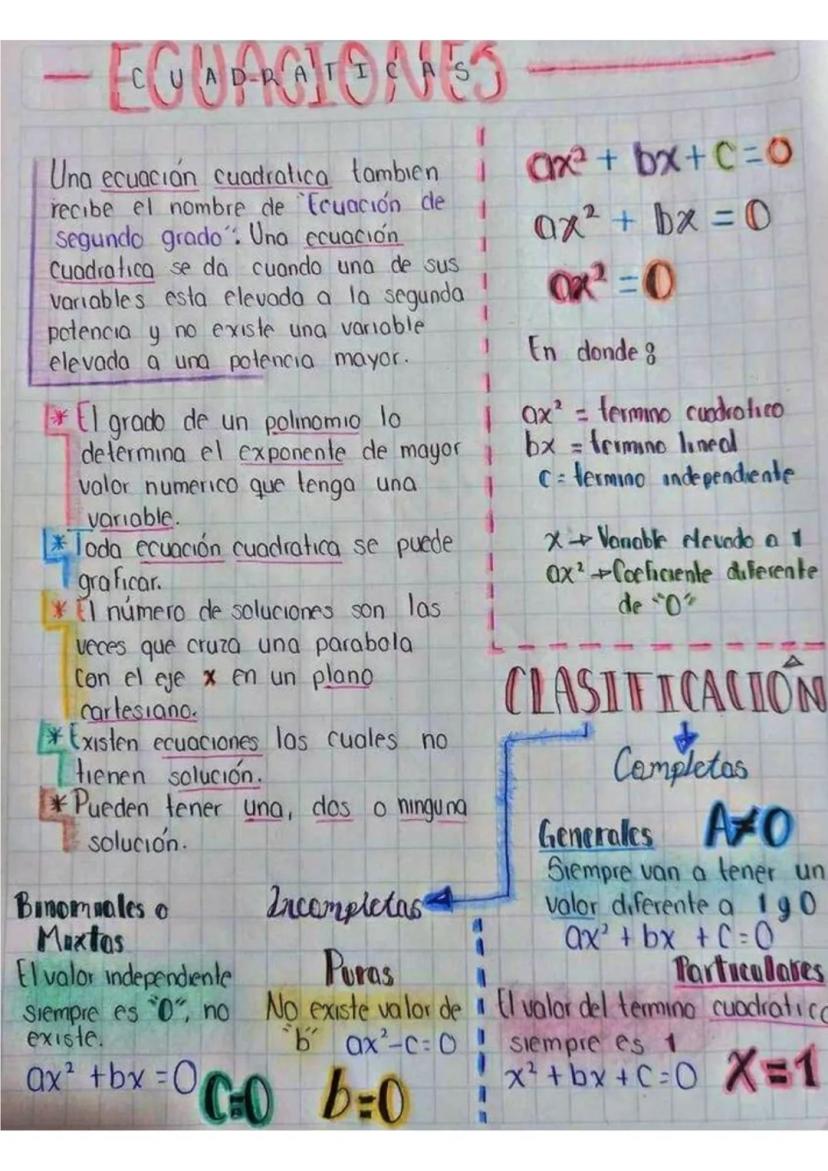 ECUACIONES
CUADRATICAS
Una ecuación cuadratica tambien
recibe el nombre de "Ecuación de
segundo grado". Una ecuación
cuadratica se da cuando una de sus
variables esta elevada a la segunda
potencia y no existe una variable
elevada a una potencia mayor.
* El grado de un polinomio lo
determina el exponente de mayor
valor numerico que tenga una
variable.
* Toda ecuación cuadratica se puede
graficar.
* El número de soluciones son las
veces que cruza una parabola
con el eje x en un plano
cartesiano.
* Existen ecuaciones las cuales no
tienen solución.
* Pueden tener una, dos o ninguna
solución.
ax² + bx + c = 0
ax² + bx = 0
ax² = 0
En donde:
ax² = termino cuadratico
bx = termino lineal
c = termino independiente
x → Variable elevado a 1
ax² → Coeficiente diferente
de "0"
CLASIFICACIÓN
Completas
Generales A≠0
Siempre van a tener un
valor diferente a 1 y 0
ax² + bx + c = 0
Particulares
El valor del termino cuadratico
siempre es 1
x² + bx + c = 0 X=1
Incompletas
Binomiales o
Mixtas
El valor independiente
siempre es "0", no
existe.
ax² + bx = 0
C=0
Puras
No existe valor de
"b" ax²-c=0
b=0